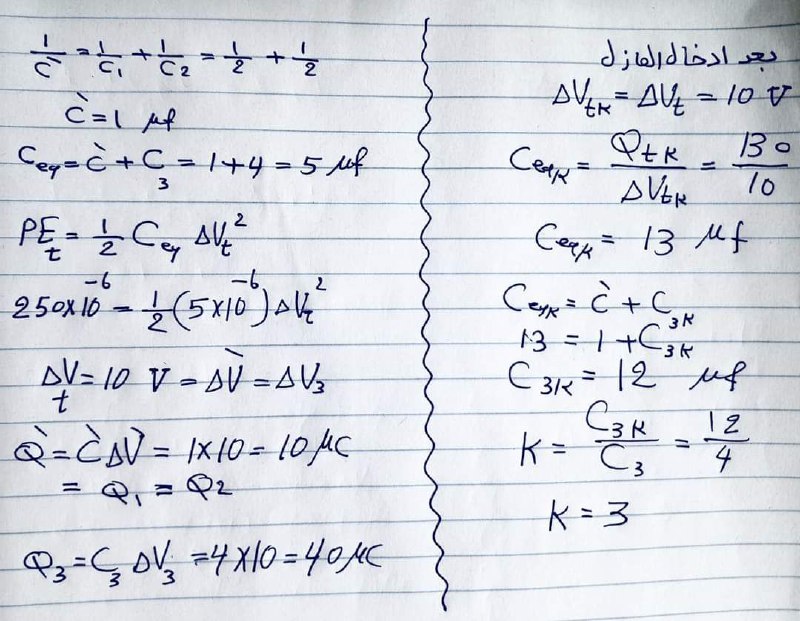 1/C̀ = 1/C₁ + 1/C₂ = 1/2 + 1/2
C̀ = 1 μf
Ceq = C̀ + C₃ = 1 + 4 = 5 μf
PEt = 1/2 Ceq ΔVt²
250×10⁻⁶ = 1/2 (5×10⁻⁶) ΔVt²
ΔVt = 10 V = ΔV̀ = ΔV₃
Q̀ = C̀ ΔV̀ = 1×10 = 10 μC
= Q₁ = Q₂
Q₃ = C₃ ΔV₃ = 4×10 = 40 μC
بعد ادخال العازل
ΔVtk = ΔVt = 10 V
Ceqk = Qtk/ΔVtk = 130/10
Ceqk = 13 μf
Ceqk = C̀ + C₃k
13 = 1 + C₃k
C₃k = 12 μf
K = C₃k/C₃ = 12/4
K = 3